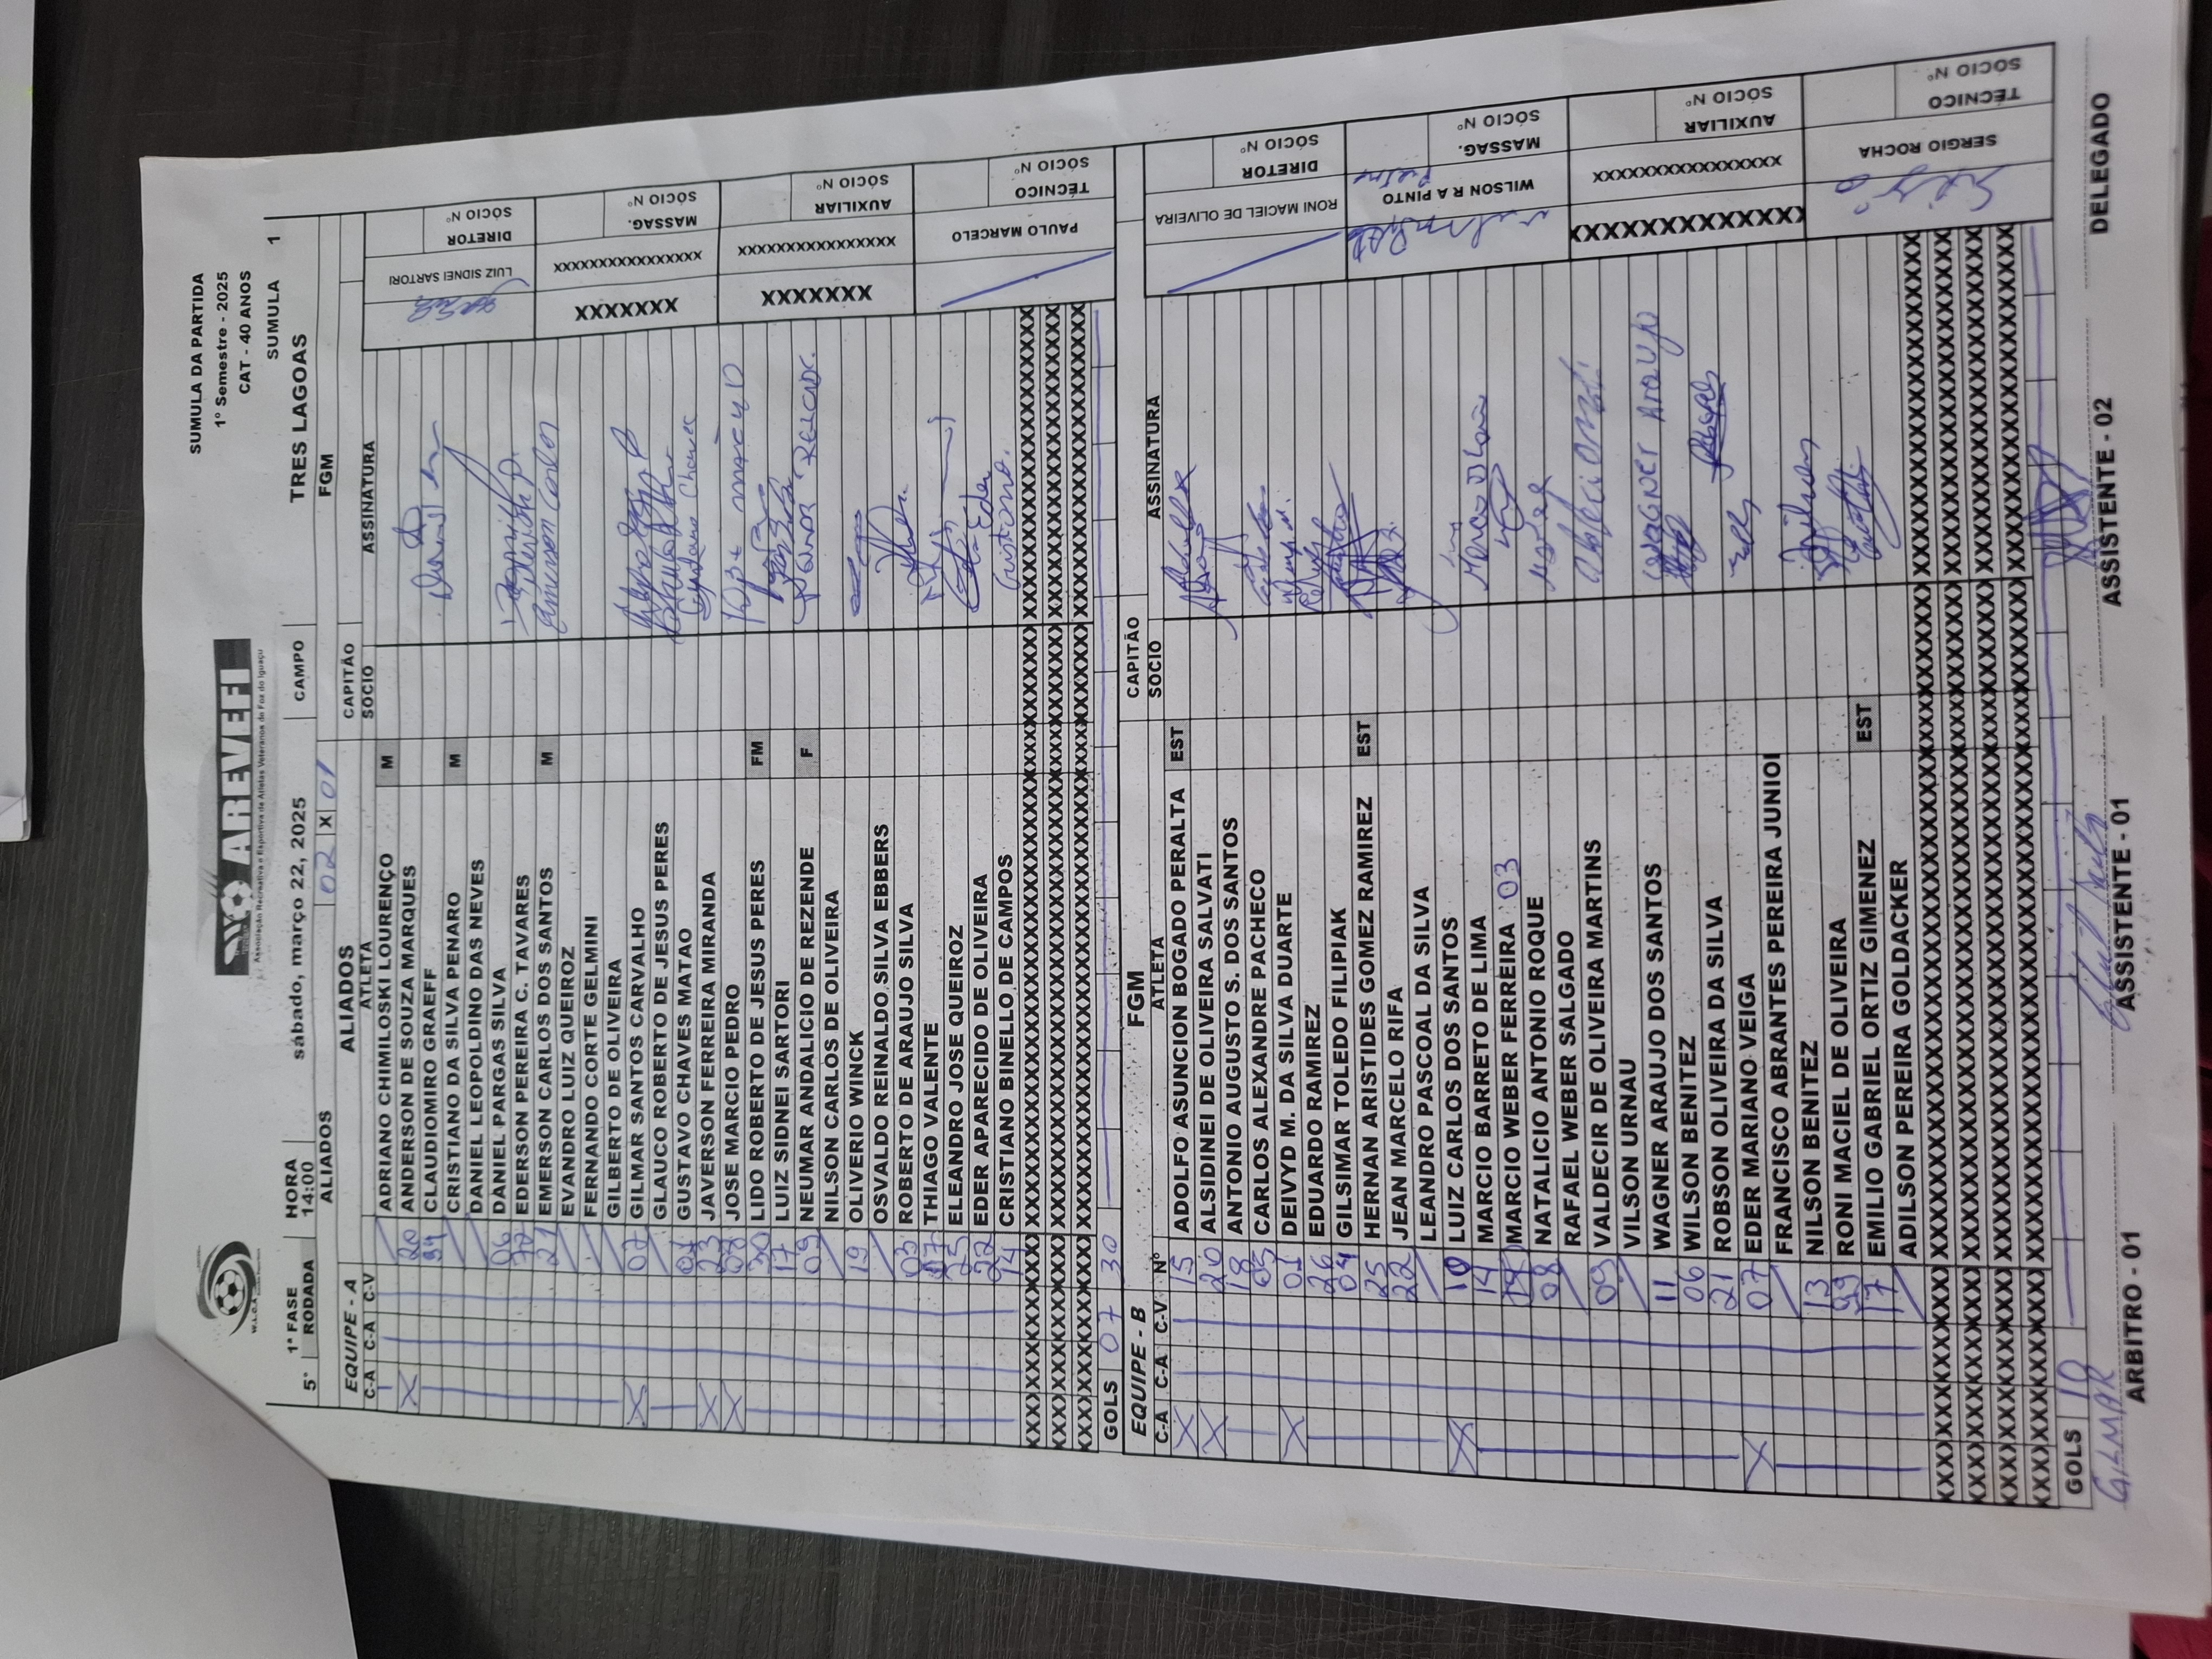 SUMULA DA PARTIDA
1º Semestre - 2025
CAT - 40 ANOS
SUMULA 1
W.L.C.A
AREVEFI
Associação Recreativa e Esportiva de Atletas Veteranos de Foz do Iguaçu
5ª 1ª FASE HORA sábado, março 22, 2025 CAMPO TRES LAGOAS
RODADA 14:00
ALIADOS 02 X 01 FGM
EQUIPE - A ALIADOS CAPITÃO
C-A C-A C-V ATLETA SOCIO ASSINATURA
ADRIANO CHIMILOSKI LOURENÇO M
X 20 ANDERSON DE SOUZA MARQUES
94 CLAUDIOMIRO GRAEFF
CRISTIANO DA SILVA PENARO M
DANIEL LEOPOLDINO DAS NEVES
06 DANIEL PARGAS SILVA
70 EDERSON PEREIRA C. TAVARES
21 EMERSON CARLOS DOS SANTOS M Emerson Carlos
EVANDRO LUIZ QUEIROZ
FERNANDO CORTE GELMINI
GILBERTO DE OLIVEIRA
X 02 GILMAR SANTOS CARVALHO
GLAUCO ROBERTO DE JESUS PERES
01 GUSTAVO CHAVES MATAO Gustavo Chaves
X 23 JAVERSON FERREIRA MIRANDA
X 08 JOSE MARCIO PEDRO José Marcio
30 LIDO ROBERTO DE JESUS PERES FM
17 LUIZ SIDNEI SARTORI
09 NEUMAR ANDALICIO DE REZENDE F
NILSON CARLOS DE OLIVEIRA
19 OLIVERIO WINCK
OSVALDO REINALDO SILVA EBBERS
03 ROBERTO DE ARAUJO SILVA
07 THIAGO VALENTE
25 ELEANDRO JOSE QUEIROZ
22 EDER APARECIDO DE OLIVEIRA Eder
14 CRISTIANO BINELLO DE CAMPOS Cristiano.
LUIZ SIDNEI SARTORI DIRETOR SÓCIO Nº
XXXXXXX XXXXXXXXXXXXXXXX MASSAG. SÓCIO Nº
XXXXXXX XXXXXXXXXXXXXXXX AUXILIAR SÓCIO Nº
PAULO MARCELO TÉCNICO SÓCIO Nº
GOLS 07 30
EQUIPE - B FGM CAPITÃO
C-A C-A C-V Nº ATLETA SOCIO ASSINATURA
X 15 ADOLFO ASUNCION BOGADO PERALTA EST
X 20 ALSIDINEI DE OLIVEIRA SALVATI
18 ANTONIO AUGUSTO S. DOS SANTOS
05 CARLOS ALEXANDRE PACHECO
X 01 DEIVYD M. DA SILVA DUARTE
26 EDUARDO RAMIREZ
04 GILSIMAR TOLEDO FILIPIAK
25 HERNAN ARISTIDES GOMEZ RAMIREZ EST
22 JEAN MARCELO RIFA
LEANDRO PASCOAL DA SILVA
X 10 LUIZ CARLOS DOS SANTOS
14 MARCIO BARRETO DE LIMA
MARCIO WEBER FERREIRA 03
08 NATALICIO ANTONIO ROQUE
RAFAEL WEBER SALGADO
09 VALDECIR DE OLIVEIRA MARTINS
VILSON URNAU
11 WAGNER ARAUJO DOS SANTOS WAGNER ARAUJO
06 WILSON BENITEZ
21 ROBSON OLIVEIRA DA SILVA
X 07 EDER MARIANO VEIGA
FRANCISCO ABRANTES PEREIRA JUNIOR
13 NILSON BENITEZ
99 RONI MACIEL DE OLIVEIRA
17 EMILIO GABRIEL ORTIZ GIMENEZ EST
ADILSON PEREIRA GOLDACKER
RONI MACIEL DE OLIVEIRA DIRETOR SÓCIO Nº
WILSON R A PINTO MASSAG. SÓCIO Nº
XXXXXXXXXXXXX XXXXXXXXXXXXXXXX AUXILIAR SÓCIO Nº
SERGIO ROCHA TÉCNICO SÓCIO Nº
GOLS 10
GILMAR
ARBITRO - 01 ASSISTENTE - 01 ASSISTENTE - 02 DELEGADO